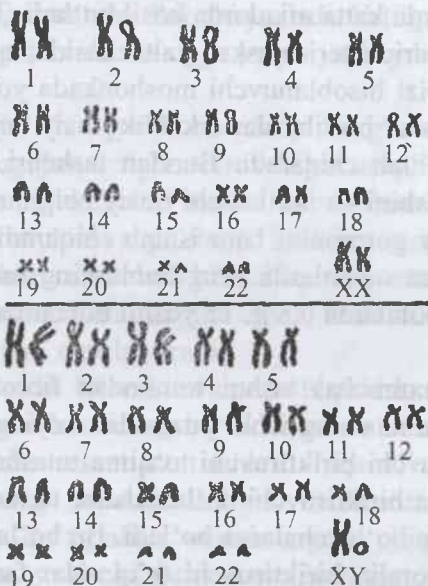 1 2 3 4 5
6 7 8 9 10 11 12
13 14 15 16 17 18
19 20 21 22 XX
1 2 3 4 5
6 7 8 9 10 11 12
13 14 15 16 17 18
19 20 21 22 XY